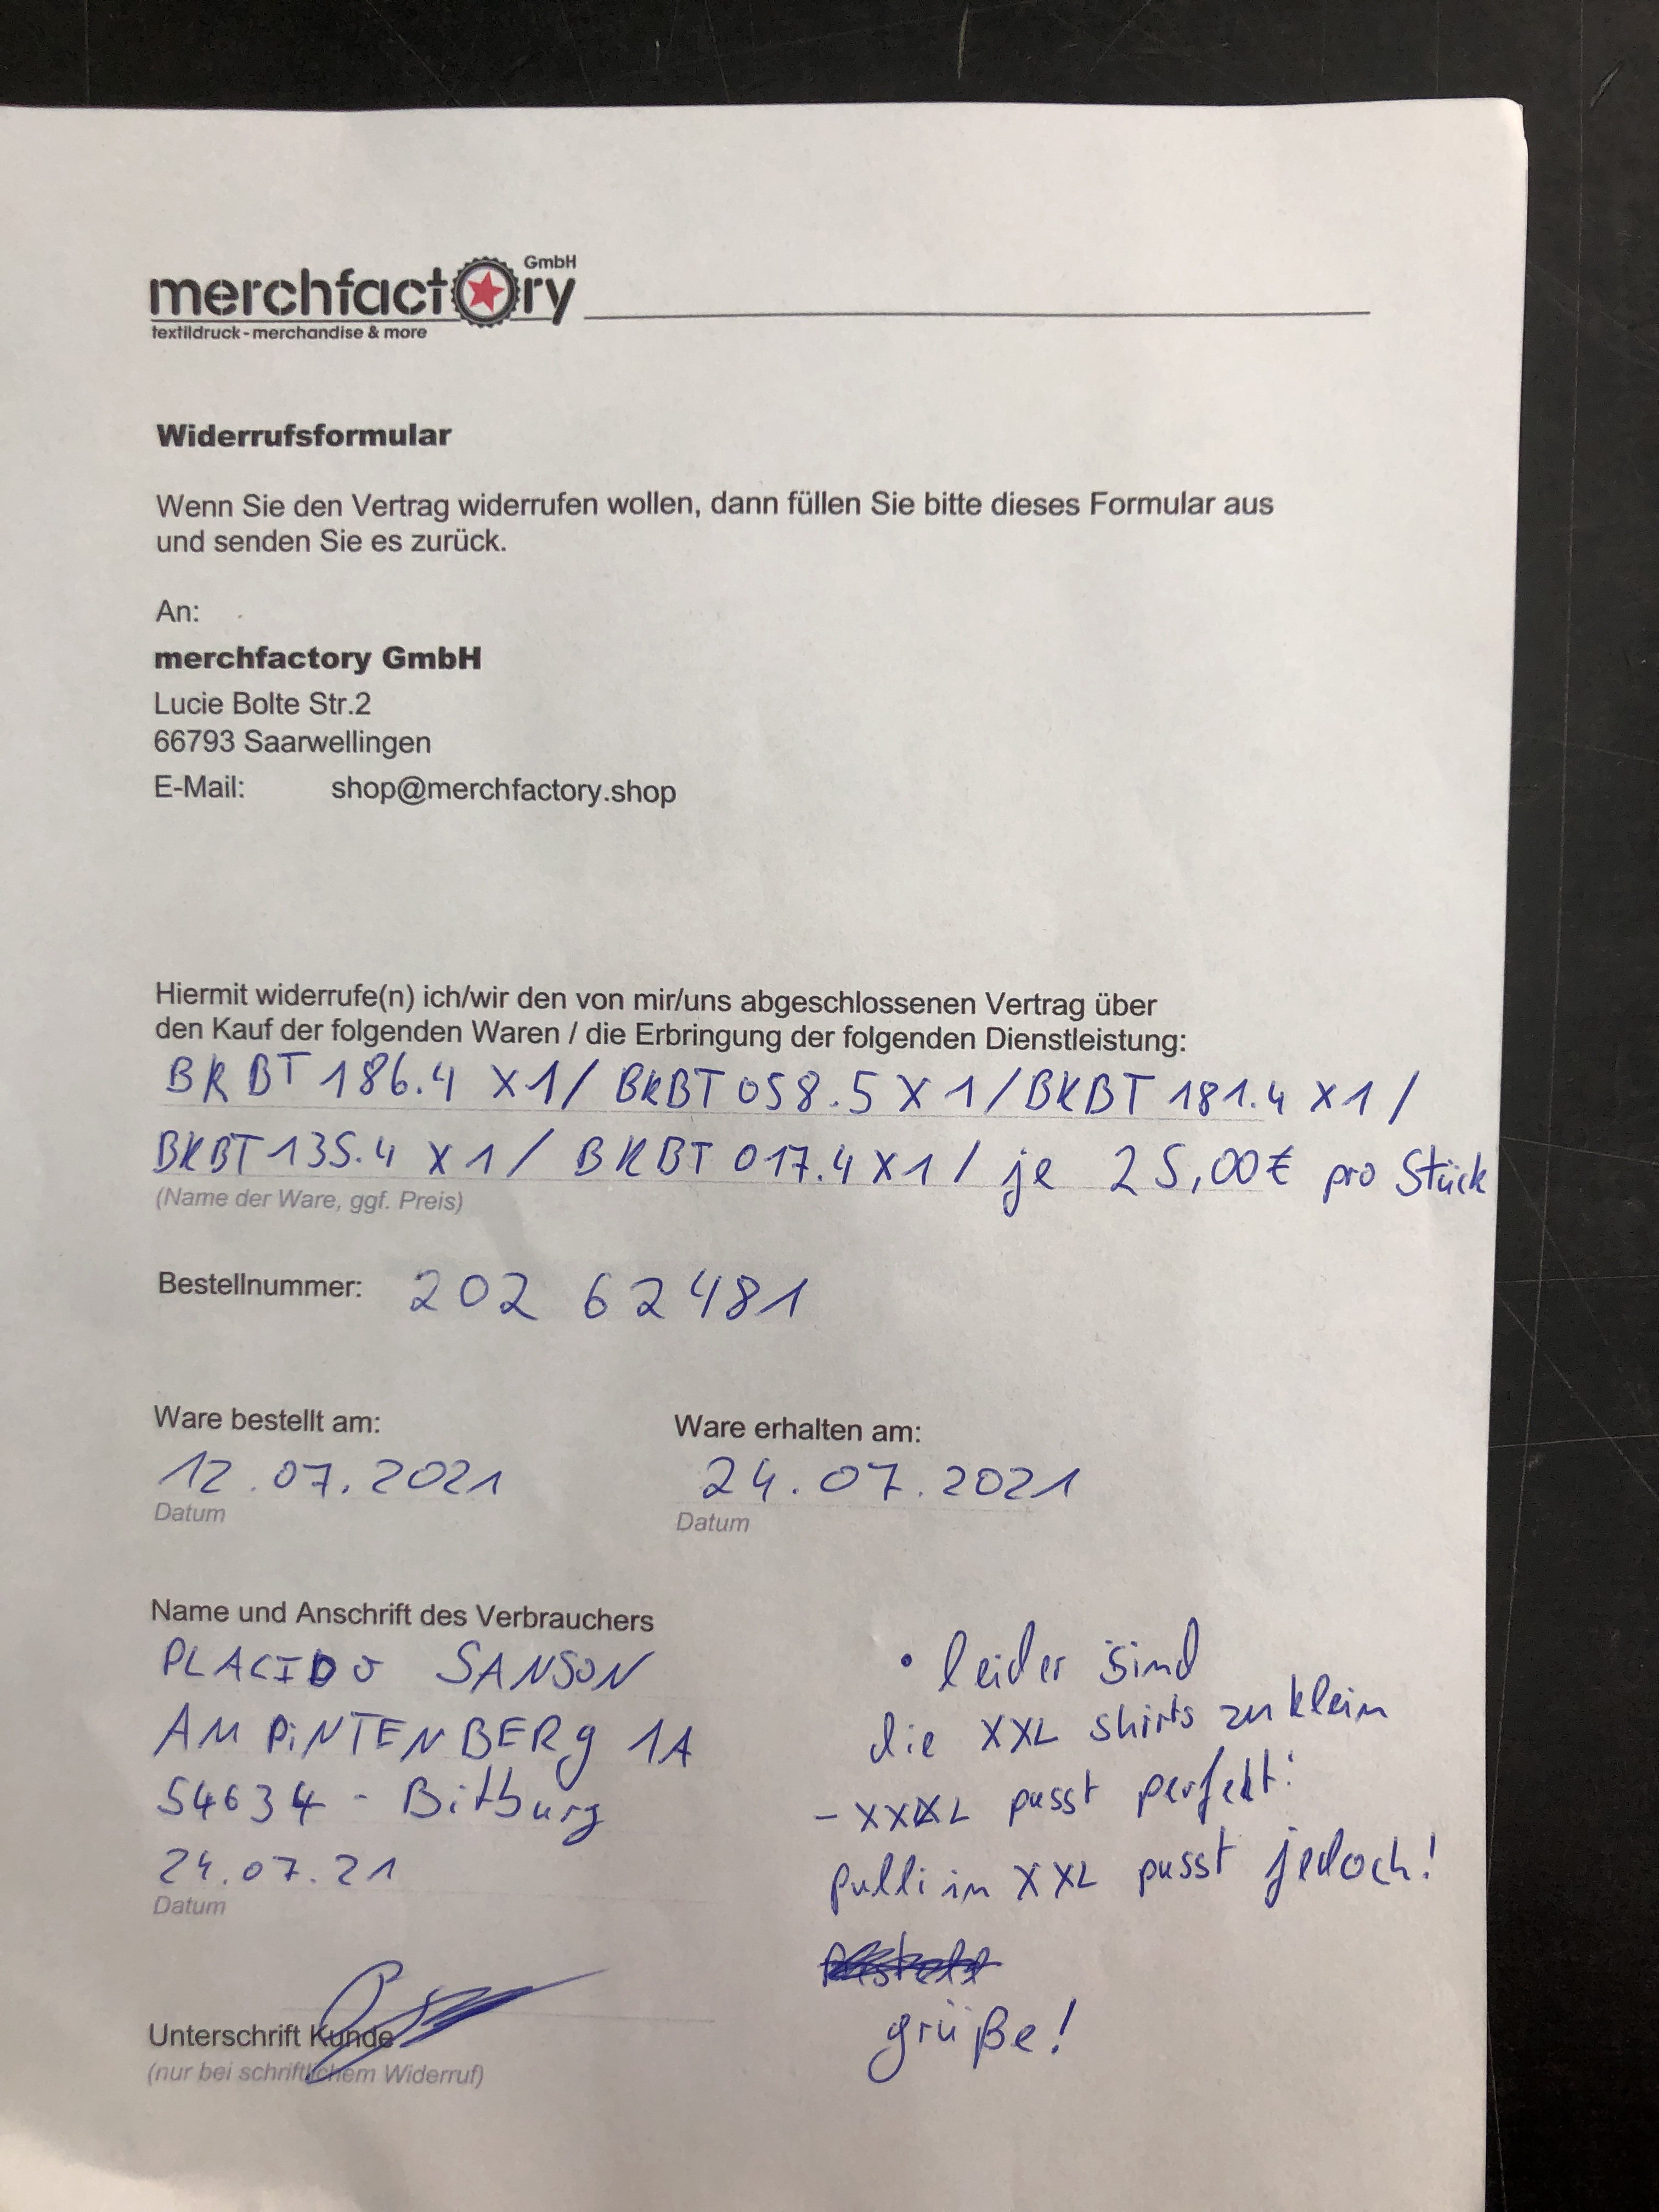 merchfactory GmbH
textildruck - merchandise & more
Widerrufsformular
Wenn Sie den Vertrag widerrufen wollen, dann füllen Sie bitte dieses Formular aus
und senden Sie es zurück.
An:
merchfactory GmbH
Lucie Bolte Str.2
66793 Saarwellingen
E-Mail: shop@merchfactory.shop
Hiermit widerrufe(n) ich/wir den von mir/uns abgeschlossenen Vertrag über
den Kauf der folgenden Waren / die Erbringung der folgenden Dienstleistung:
BKBT 186.4 X1/ BKBT 058.5 X 1 / BKBT 181.4 X1 /
BKBT 135.4 X 1 / BKBT 017.4 X1 / je 25,00€ pro Stück
(Name der Ware, ggf. Preis)
Bestellnummer: 202 62481
Ware bestellt am: Ware erhalten am:
12.07.2021 24.07.2021
Datum Datum
Name und Anschrift des Verbrauchers
PLACIDO SANSON
AM PiNTENBERg 1A
54634 - Bitburg
24.07.21
Datum
• leider sind
die XXL shirts zu klein
- XXXL passt perfekt!
pulli in XXL passt jedoch!
grüße!
Unterschrift Kunde
(nur bei schriftlichem Widerruf)